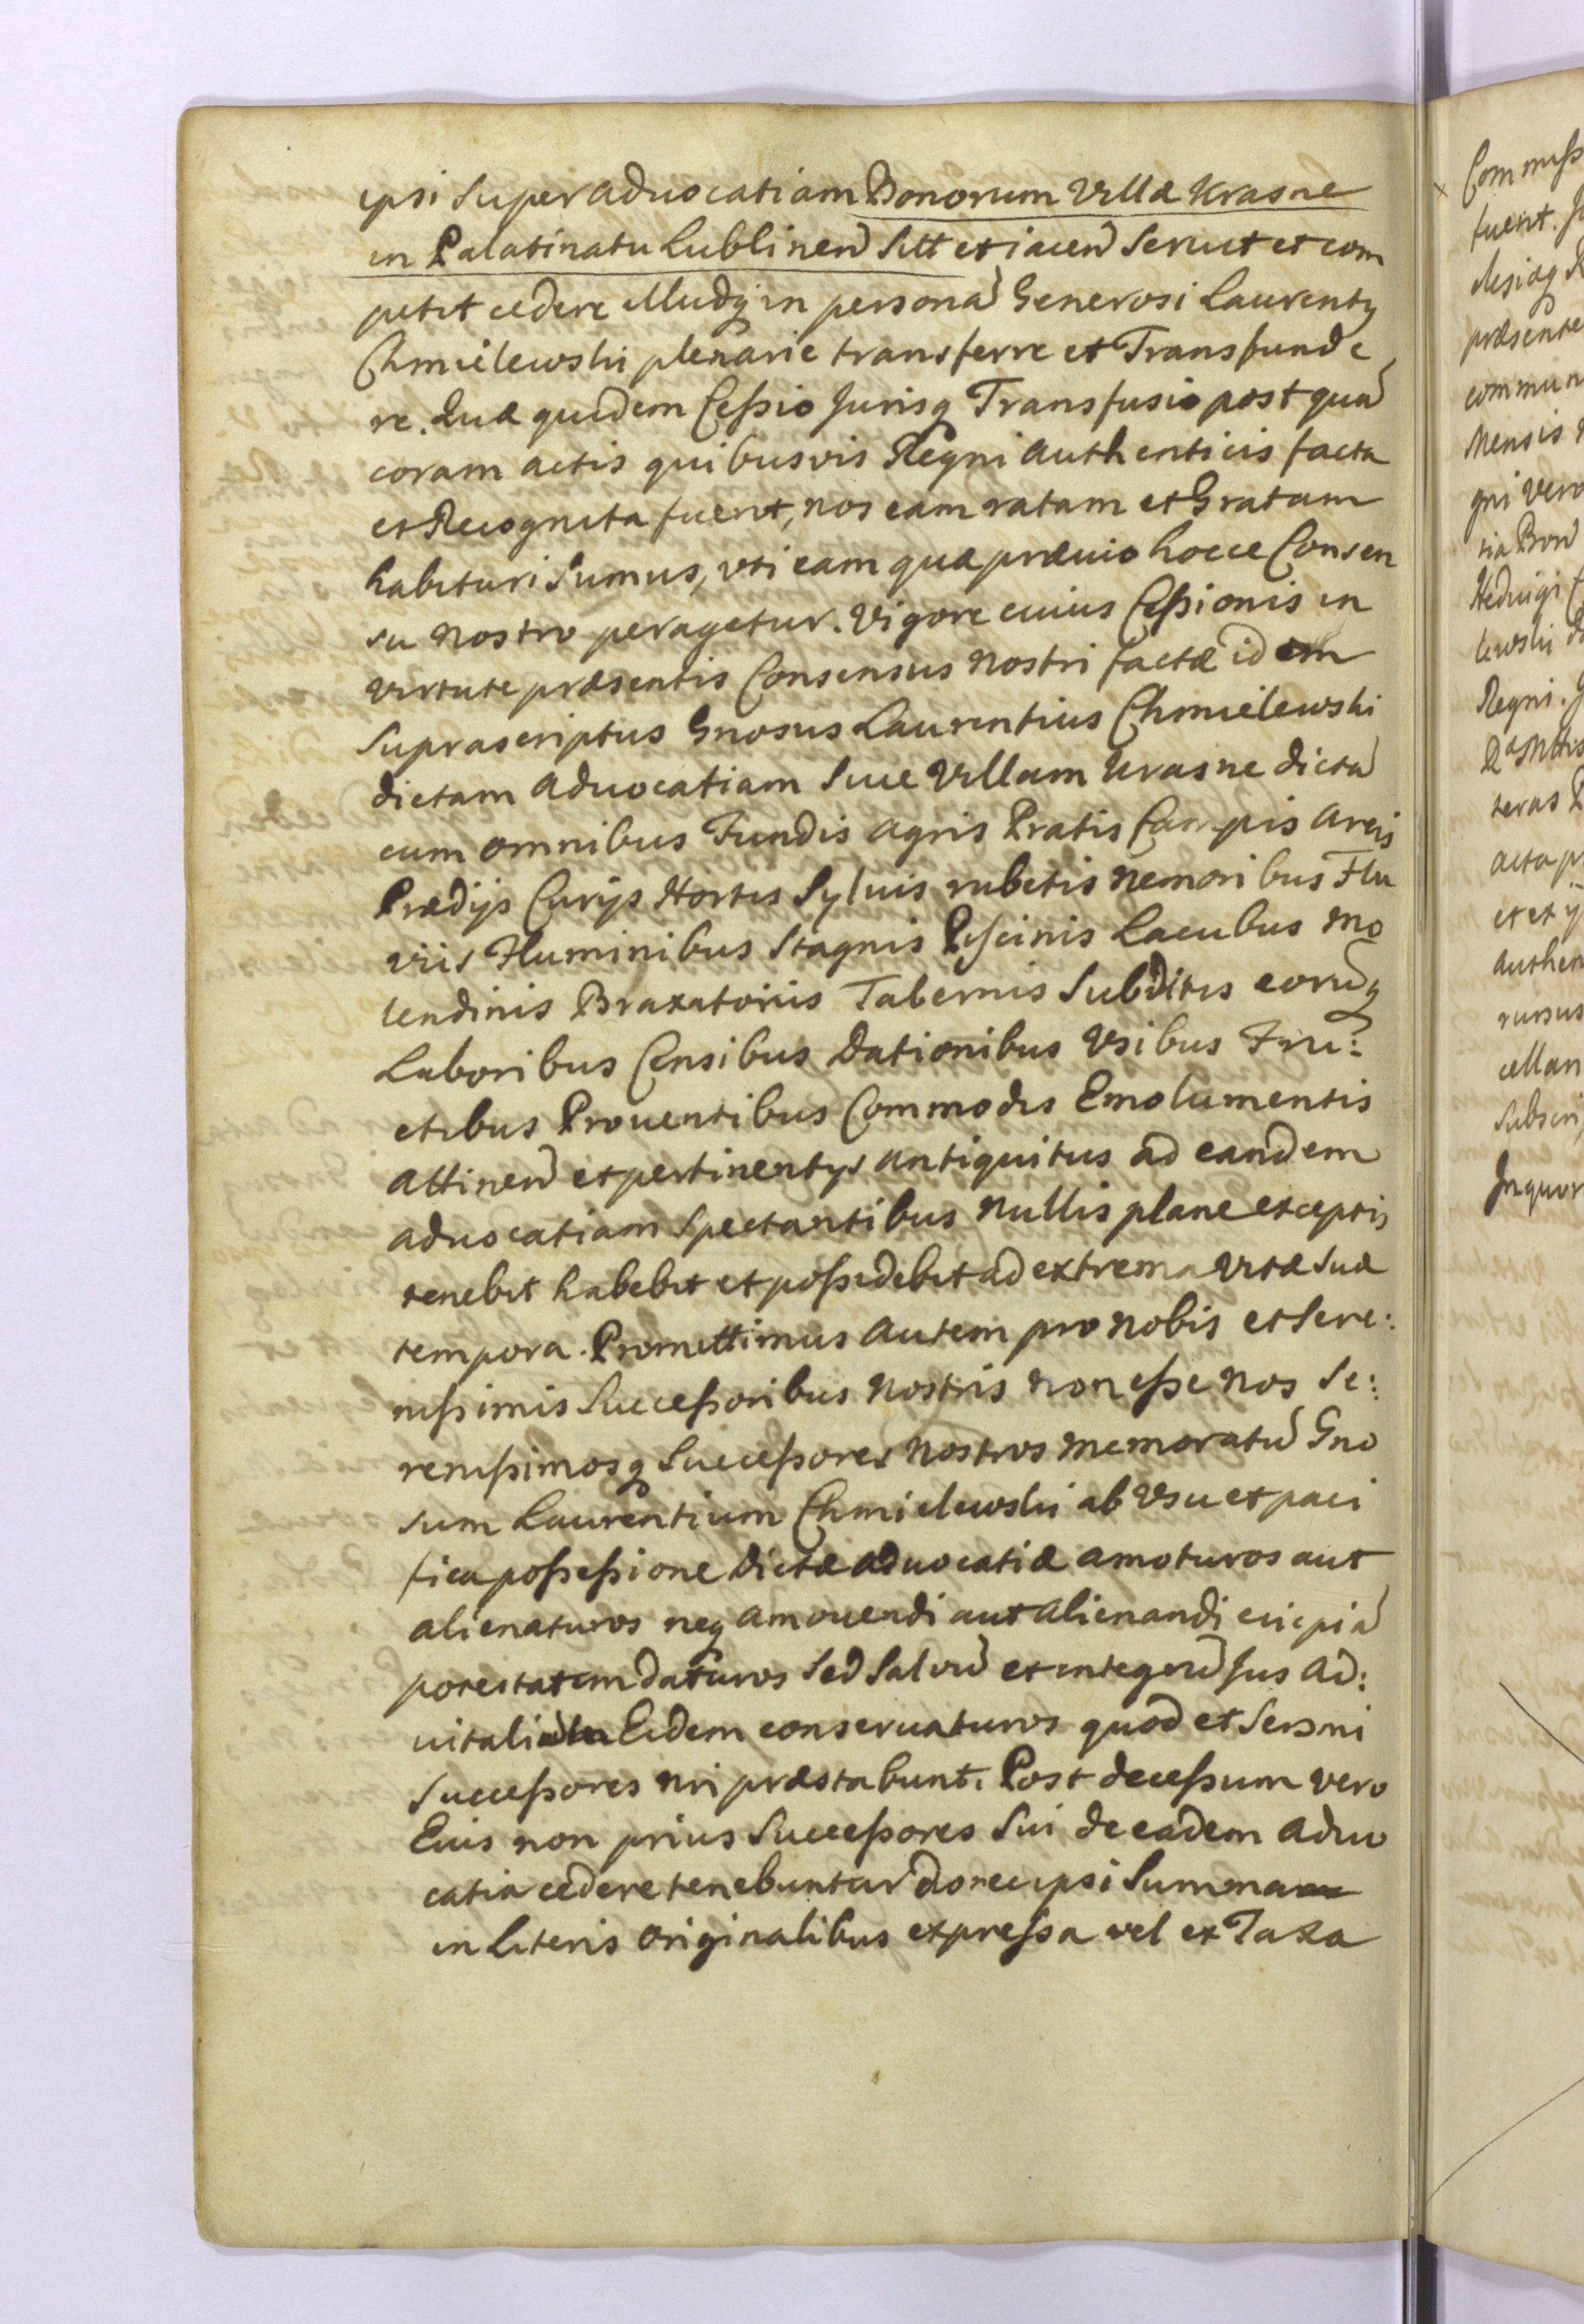 ipsi super aduocatiam Bonorum Villæ Krasne
in Palatinatu Lublinen̄ Sitt et iacen̄ Seruit et com
petit cedere illudq̨ in personā Generosi Laurentÿ
Chmielewski plenarie transferre et Transfunde
re. Quæ quidem Ceßio Jurisq̨ Transfusio postquā
coram actis quibusvis Regni Authenticis facta
et Recognita fuerit, nos eam ratam et Gratam
habituri Sumus, vti eam quæ præuio hocce Consen
su Nostro peragetur. Vigore cuius Ceßionis in
virtute præsentis Consensus Nostri factæ idem
Suprascriptus Gnosus Laurentius Chmielewski
dictam Aduocatiam Siue Villam Krasne dictā
cum omnibus Fundis Agris Pratis Campis Areis
Prædÿs Curÿs Hortis Syluis rubetis Nemoribus Flu
viis Fluminibus Stagnis Piscinis Lacubus Mo
lendinis Braxatoriis Tabernis Subditis eorūq̨
Laboribus Censibus Dationibus Vsibus Fru:
ctibus Prouentibus Commodis Emolumentis
Attinen̄ et pertinentÿs Antiquitus ad eandem
Aduocatiam Spectantibus Nullis plane exceptis
tenebit habebit et poßidebit ad extrema Vitæ Suæ
tempora. Promittimus Autem pro Nobis et Sere:
nißimis Succeßoribus Nostris non eße Nos Se:
renißimosq̨ Succeßores Nostros Memoratū Gno
sum Laurentium Chmielewski ab Vsu et paci
fica poßeßione Dictæ Aduocatiæ Amoturos aut
Alienaturos neq̨ Amouendi aut Alienandi cuipiā
potestatem daturos Sed Saluū et integrū Jus Ad:
uitali Eidem conseruaturos quod et Sersmi
Succeßores nri præstabunt. Post deceßum vero
Eius non prius Succeßores Sui de eadem Aduo
catia cedere tenebuntur donec ipsi Summa
in Literis Originalibus expreßa vel ex Taxa